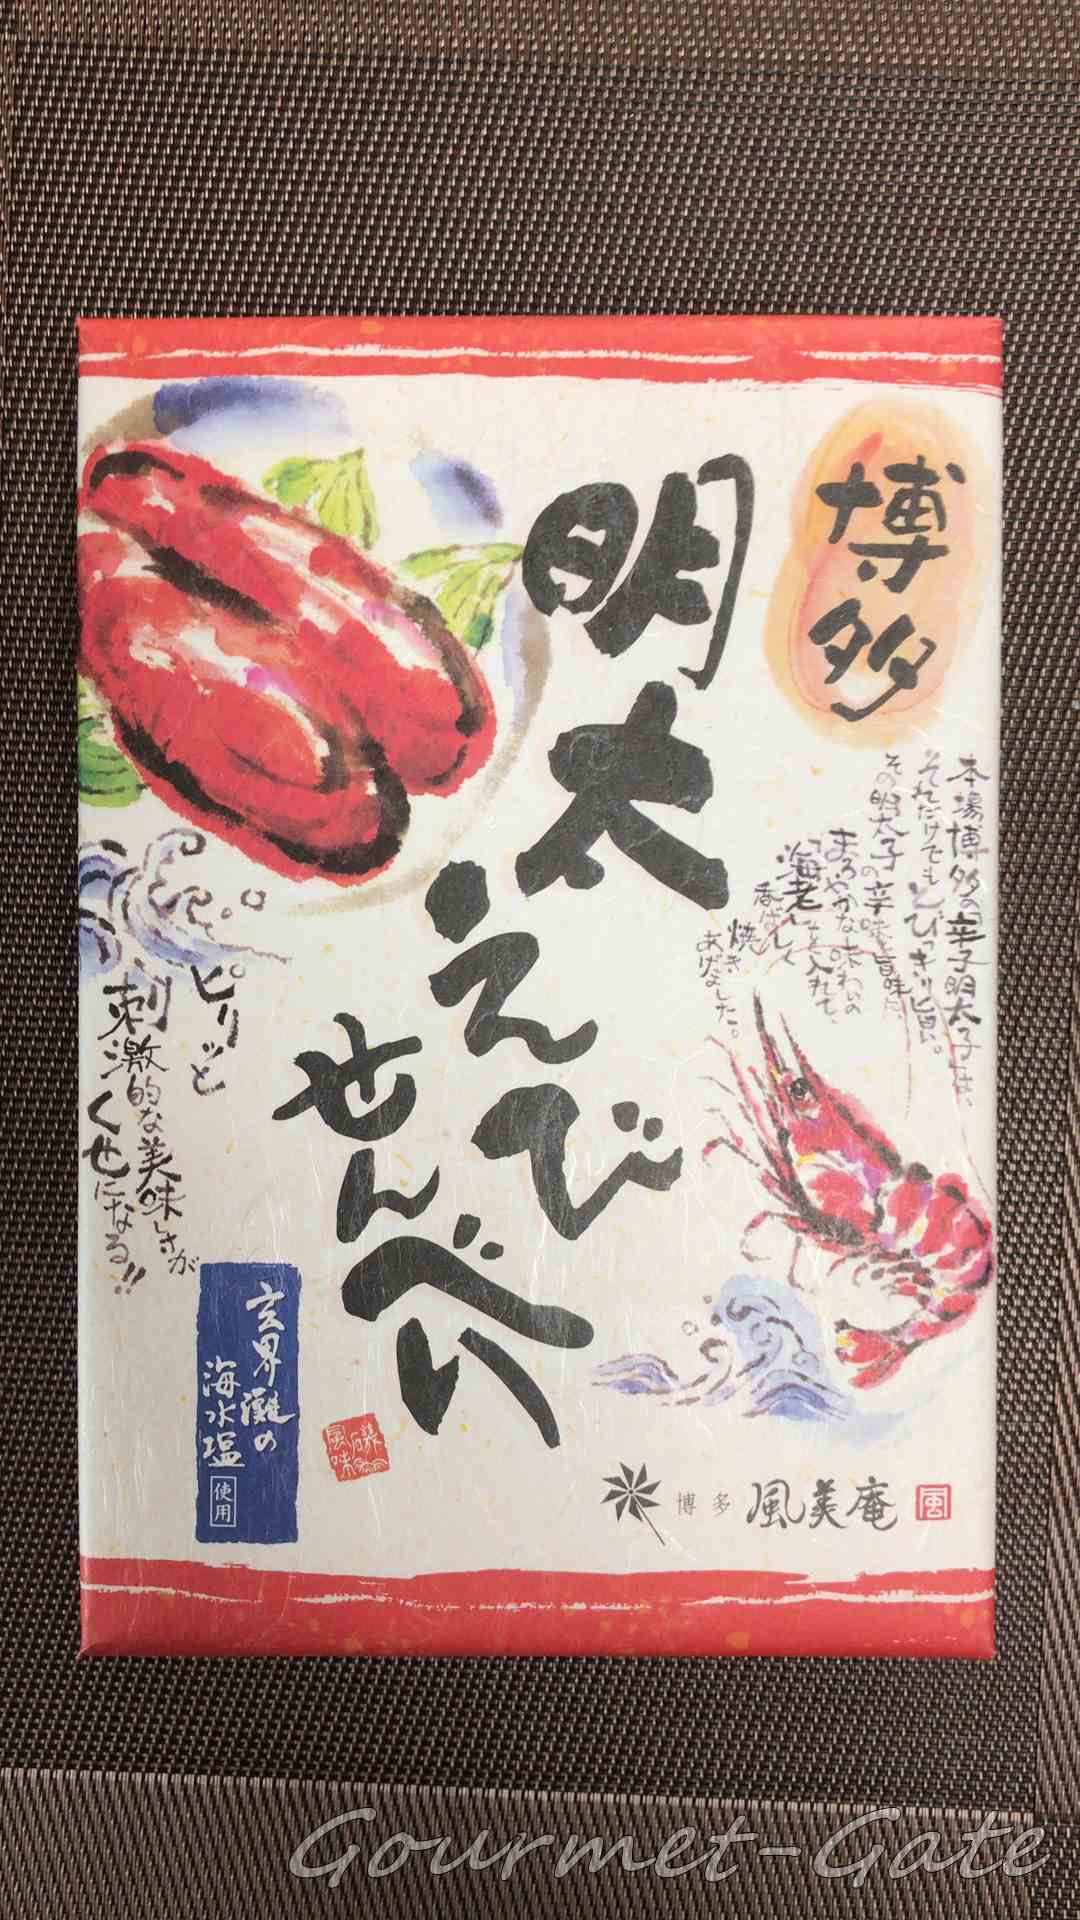 博多
明太
えび
せんべい
本場博多の辛子明太子は、
それだけでもとびっきり旨い。
その明太子の辛味と旨味に、
まろやかな味わいの
「海老」を入れて、
香ばしく
焼き
あげました。
ピリッと
刺激的な美味しさが
くせになる!!
玄界灘の
海水塩
使用
風味
博多 風美庵
風
Gourmet-Gate